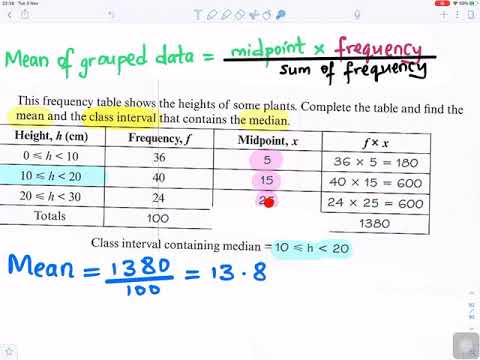 22:38 Tue 3 Nov
53%
Mean of grouped data = midpoint × frequency
sum of frequency
This frequency table shows the heights of some plants. Complete the table and find the
mean and the class interval that contains the median.
Height, h (cm) Frequency, f Midpoint, x f × x
0 ⩽ h < 10 36 5 36 × 5 = 180
10 ⩽ h < 20 40 15 40 × 15 = 600
20 ⩽ h < 30 24 25 24 × 25 = 600
Totals 100 1380
Class interval containing median = 10 ⩽ h < 20
Mean = 1380 = 13.8
100